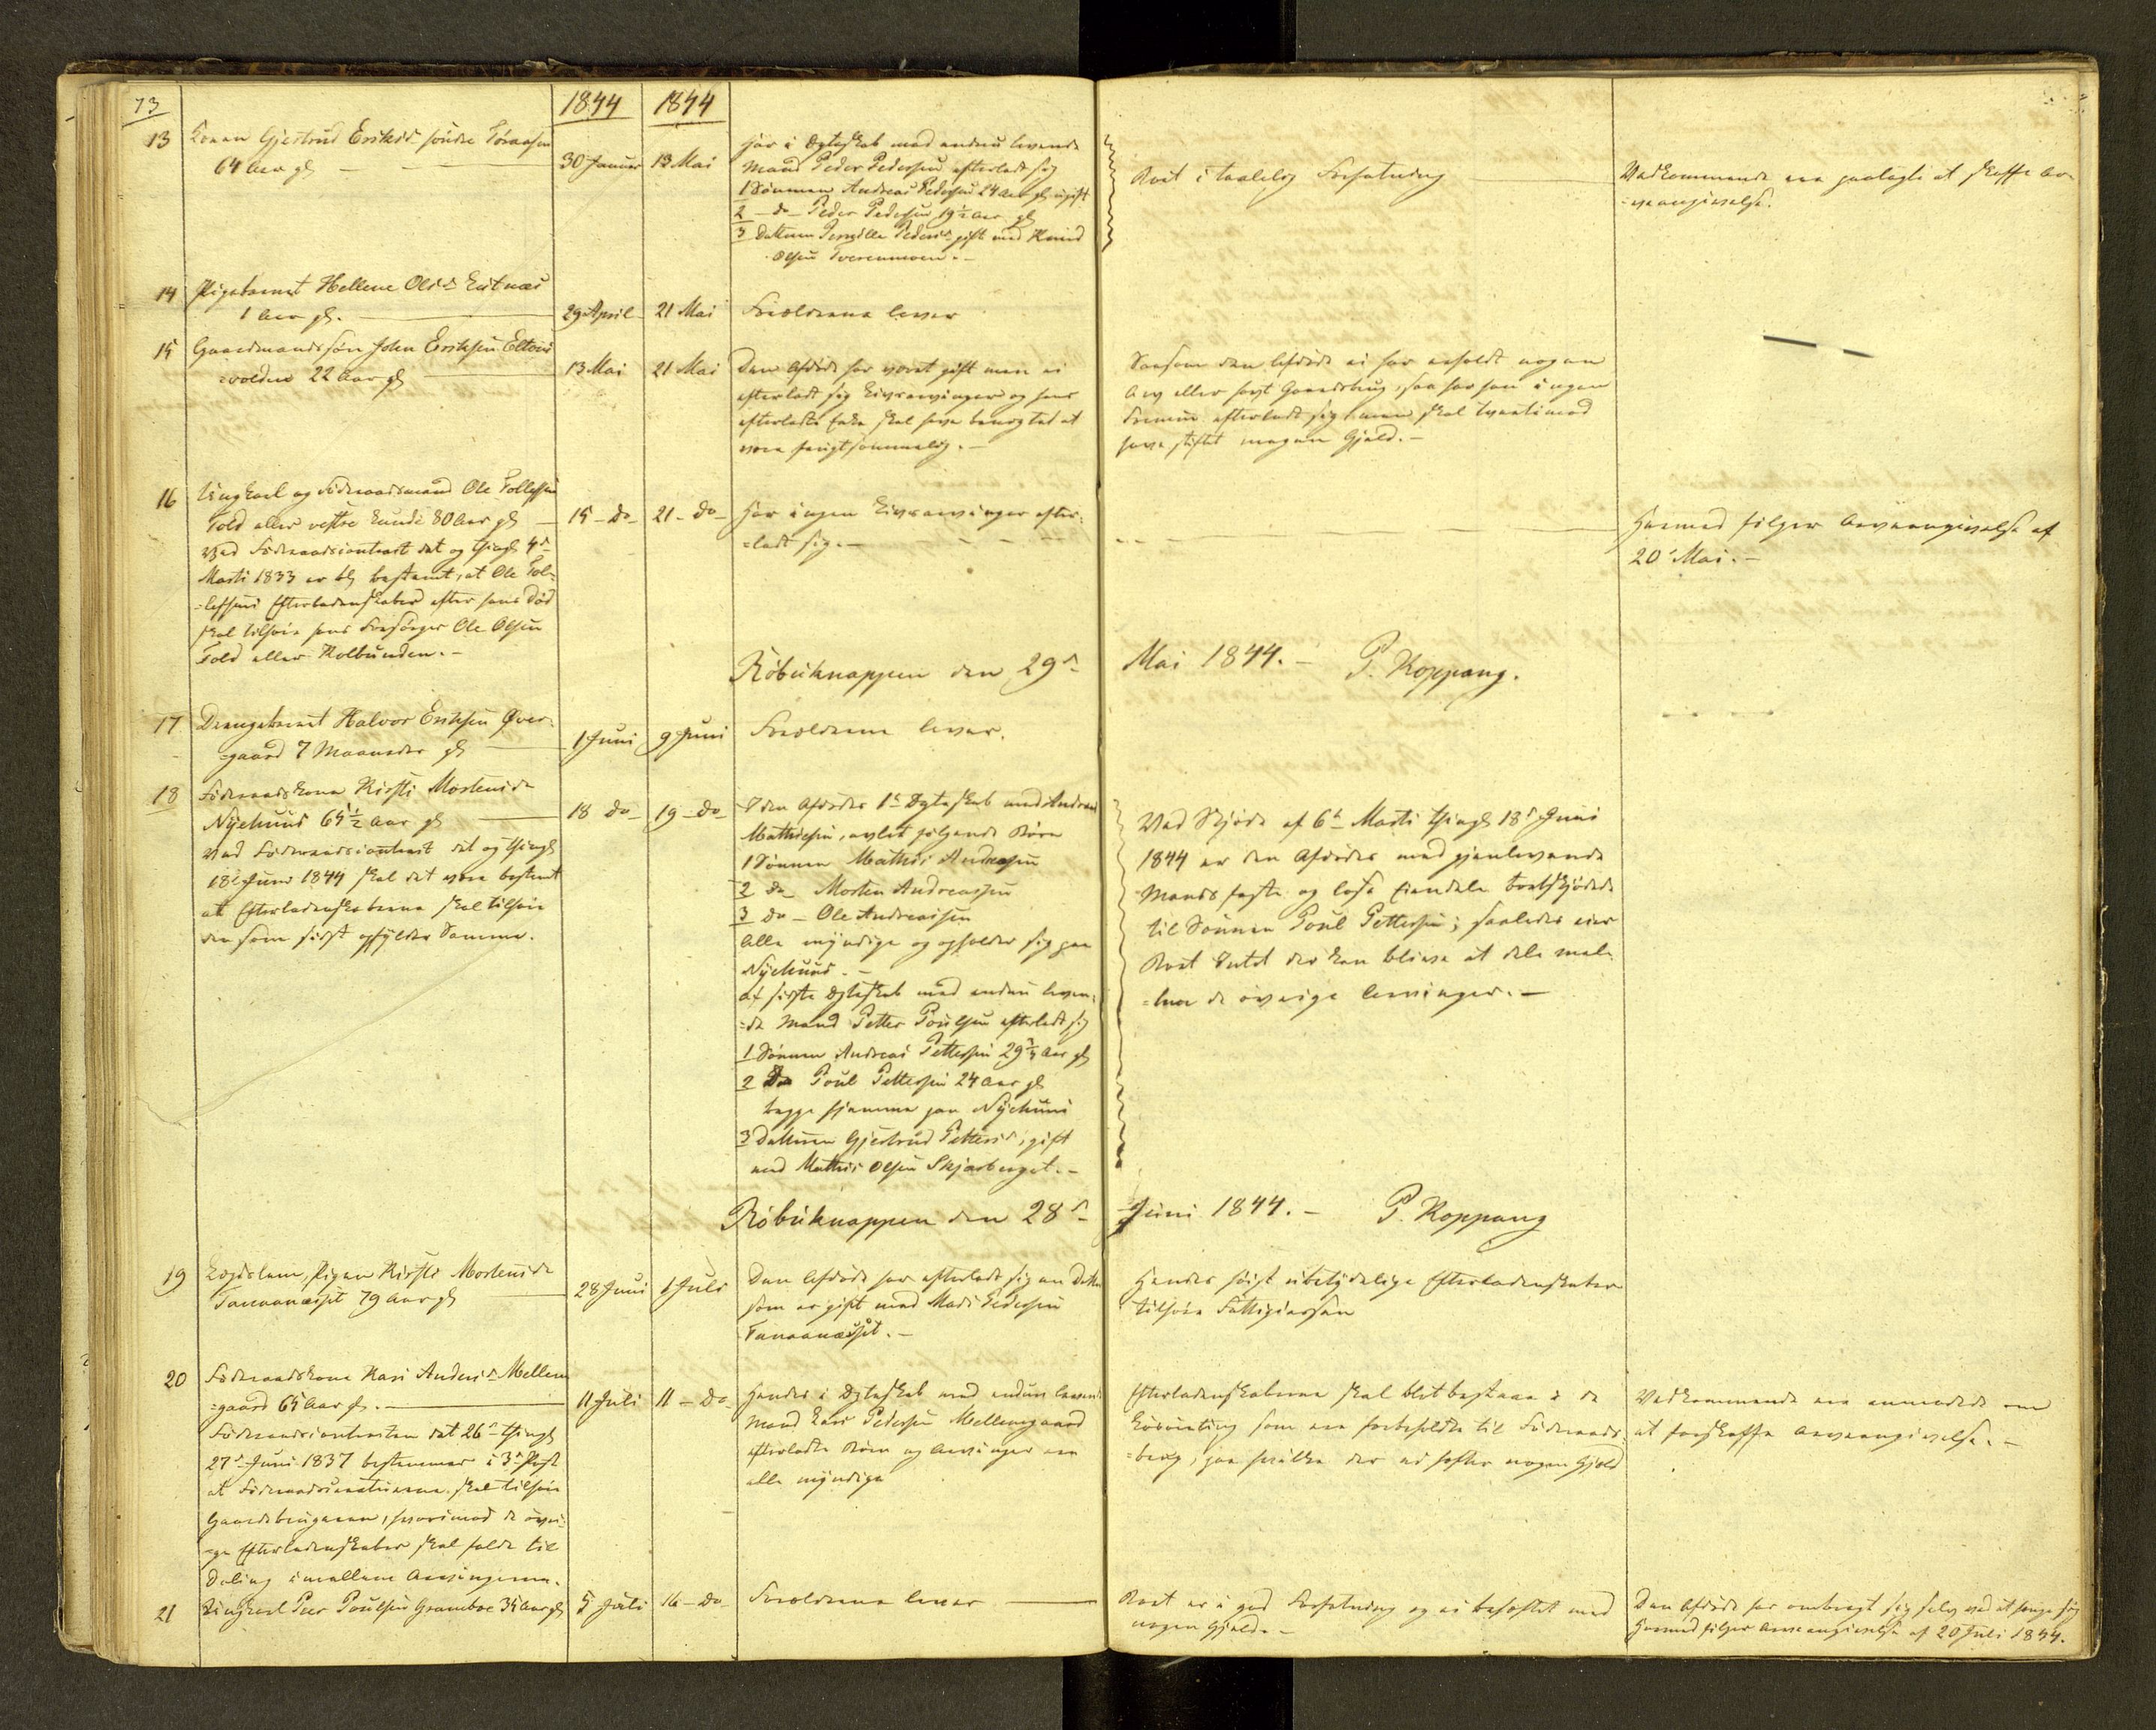 73
1844
1844
13 Konen Gjertrud Eriksd søndre
64 Aar gl
30 Januar 13 Mai
Har i Ægteskab med endnu levende
Mand Peder Pedersen efterladt sig
1 Sønnen Andreas Pedersen 24 Aar gl ugift
2 - do - Peder Pedersen 19½ Aar gl
3 Datteren Pernille Pedersd gift med Knud
Olsen
Boet i taalelig Forfatning
Vedkommende ere paalagte at skaffe Ar-
=veangivelse.
14 Pigebarnet Hellene Olsd
1 Aar gl.
29 April 21 Mai
Forældrene lever
15 Gaardmandssøn John Eriksen
=volden 22 Aar gl
13 Mai 21 Mai
Den Afdøde har været gift men ei
efterladt sig Livsarvinger og hans
efterladte Enke skal have benegtet at
være frugtsommelig. -
Saasom den Afdøde ei har erholdt nogen
Arv eller havt Gaardsbrug, saa har han ingen
efterladt sig men skal tvertimod
have stiftet megen Gjæld. -
16 Ungkarl og Føderaadsmand Ole Tollefsen
Told eller vestre Lunde 80 Aar gl
Ved Føderaadscontract dat og thingl 4d
Marti 1833 er bl bestemt, at Ole Tol-
=lefsens Efterladenskaber efter hans Død
skal tilhøre hans Forsørger Ole Olsen
Told eller Kolbunden. -
15 - do - 21 - do -
Har ingen Livsarvinger efter-
=ladt sig. -
Hermed følger Arveangivelse af
20d Mai. -
Röbuknappen den 29d Mai 1844. - P. Koppang.
17 Drengebarnet Halvor Eriksen Øver-
=gaard 7 Maaneder gl
1 Juni 9 Juni
Forældrene lever.
18 Føderaadskone Kirsti Mortensdr
Nyehuus 65½ Aar gl
Ved Føderaadscontract dat og thingl
18d Juni 1844 skal det være bestemt
at Efterladenskaberne skal tilhøre
den som sidst opfylder Samme.
18 do - 19 - do -
I den Afdødes 1ste Ægteskab med Andreas
Mathisen, avlet følgende Børn
1 Sønnen Mathis Andreasen
2 do Morten Andreassen
3 do - Ole Andreasen
Alle myndige og opholder sig paa
Nyehuus. -
Af sidste Ægteskab med endnu leven-
=de Mand Petter Poulsen efterladt sig
1 Sønnen Andreas Pettersen 29¾ Aar gl
2 Do Poul Pettersen 24 Aar gl
begge hjemme paa Nyehuus
3 Datteren Gjertrud Pettersd, gift
med Mathis Olsen Skjærberget. -
Ved Skjøde af 6te Marti thingl 18d Juni
1844 er den Afdødes med gjenlevende
Mands faste og løse Eiendele bortskjødede
til Sønnen Poul Pettersen; saaledes eier
Boet Intet der kan blive at dele mel-
=lem de øvrige Arvinger. -
Röbuknappen den 28d Juni 1844. - P. Koppang
19 Lægdslem, Pigen Kirsti Mortensdr
79 Aar gl
28 Juni 1 Juli
Den Afdøde har efterladt sig en Datter
som er gift med Mads Pedersen
Hendes høist ubetydelige Efterladenskaber
tilhøre Fattigcassen
20 Føderaadskone Kari Andersd Mellem
=gaard 65 Aar gl. -
Føderaadscontracten dat 26d thingl
27d Juni 1837 bestemmer i 3d Post
at skal tilhøre
Gaardebrugeren, hvorimod de øvri-
=ge Efterladenskaber skal falde til
Deling imellem Arvingerne.
11 Juli 11 - do -
Hendes i Ægteskab med endnu levende
Mand Lars Pedersen Mellemgaard
efterladte Børn og Arvinger ere
alle myndige
Efterladenskaberne skal blot bestaae i de
som ere forbeholdte til Føderaads-
=brug, paa hvilke der ei hefter nogen Gjæld
Vedkommende ere anmodede om
at forskaffe Arveangivelse. -
21 Ungkarl Peer Poulsen Gramboe 34 Aar gl
5 Juli 16 - do -
Forældrene lever
Boet er i god Forfatning og ei behæftet med
nogen Gjæld. -
Den Afdøde har ombragt sig selv ved at hænge sig
Hermed følger Arveangivelse af 20 Juli 1844.